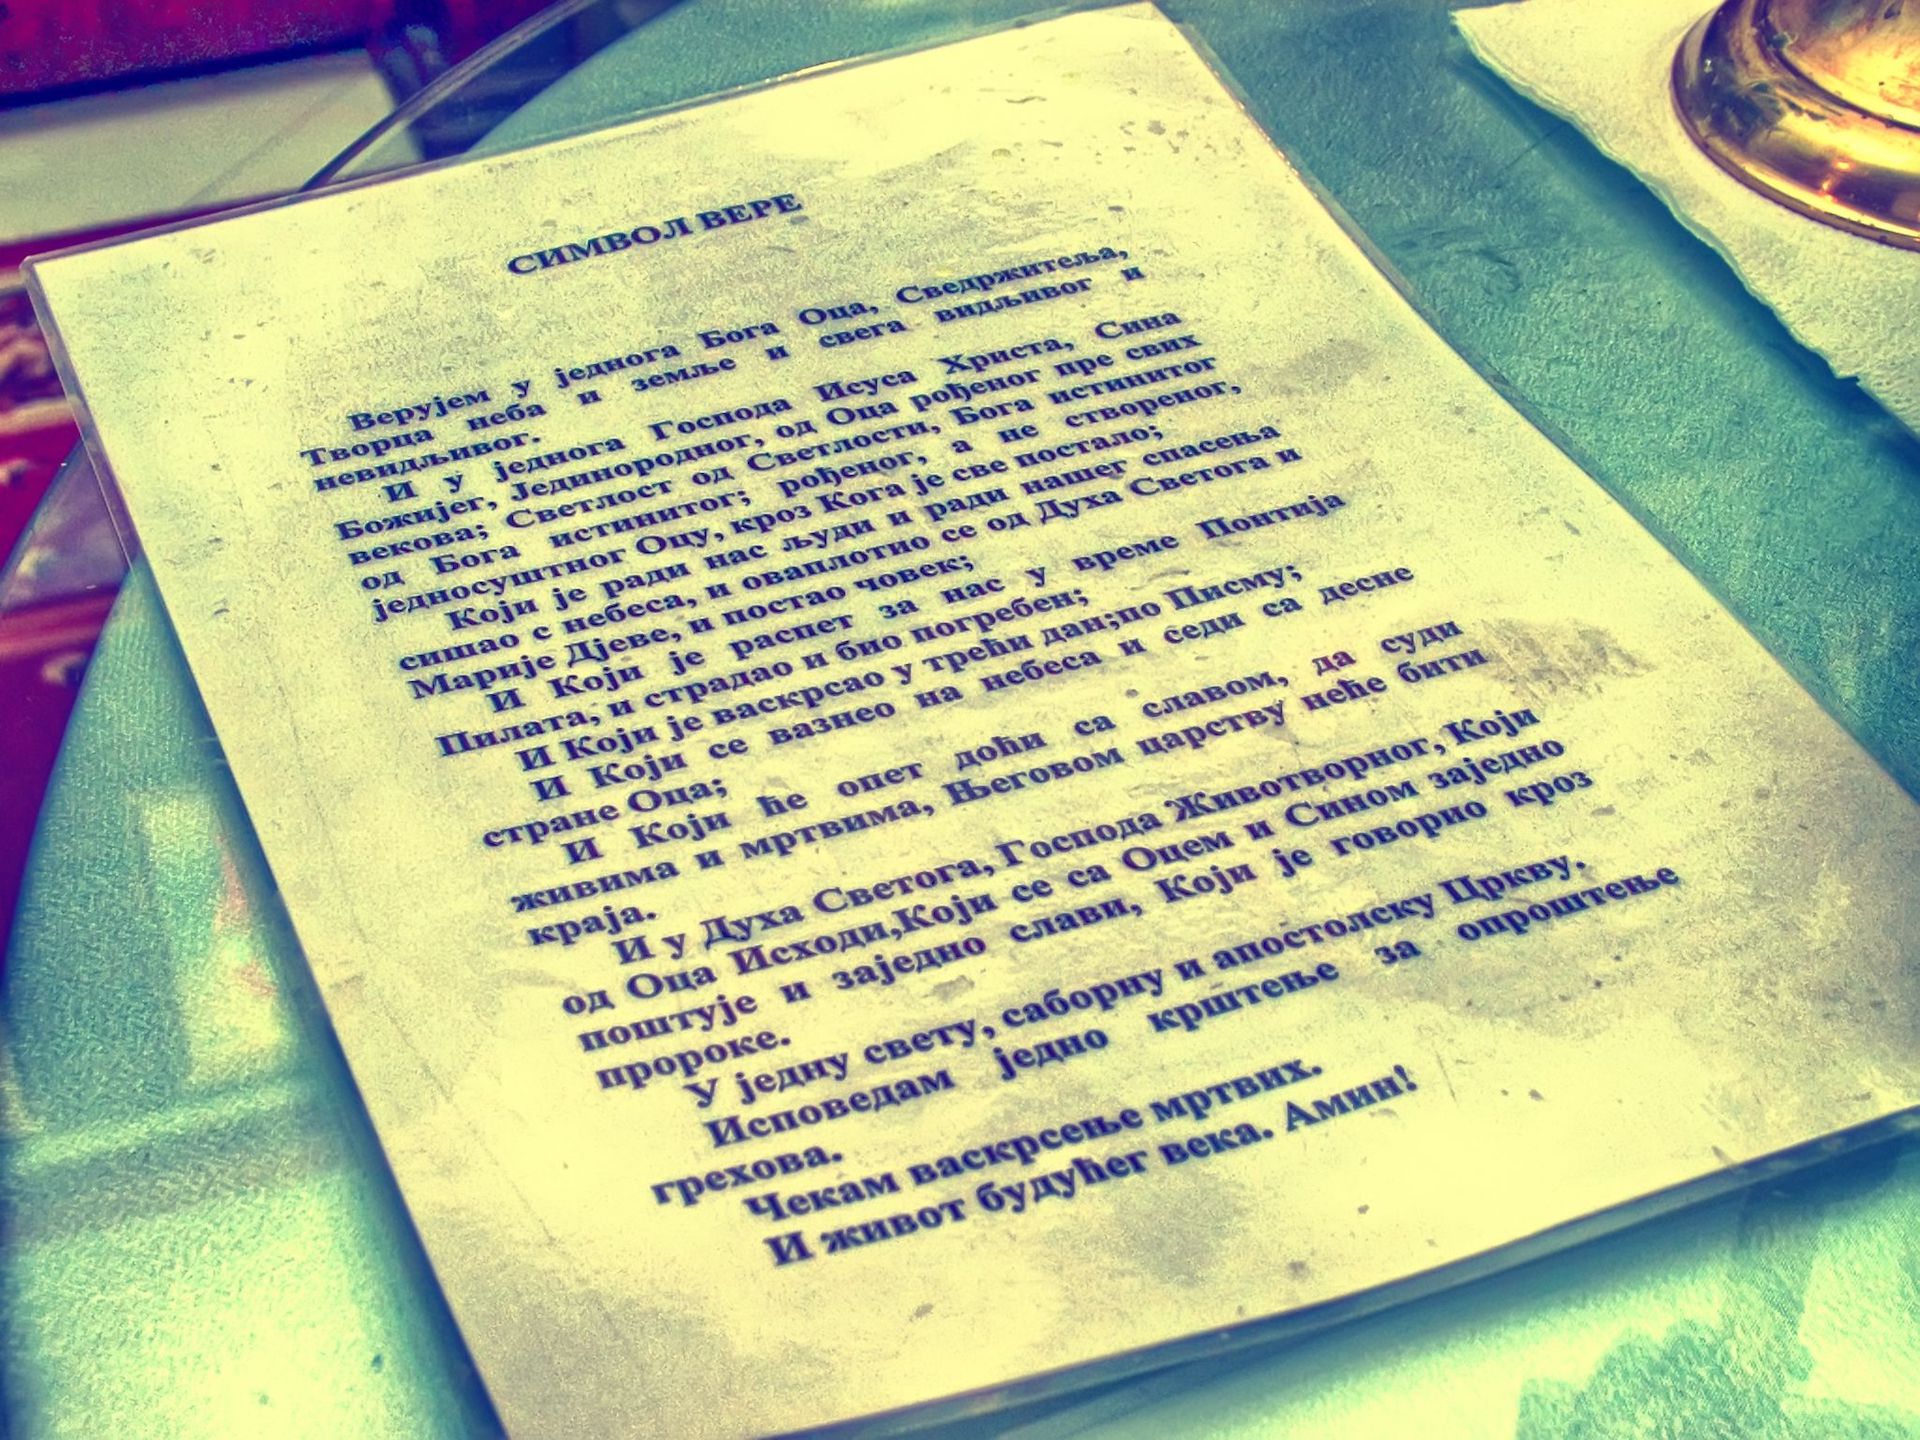 СИМВОЛ ВЕРЕ
Верујем у једнога Бога Оца, Сведржитеља,
Творца неба и земље и свега видљивог и
невидљивог.
И у једнога Господа Исуса Христа, Сина
Божијег, Јединородног, од Оца рођеног пре свих
векова; Светлост од Светлости, Бога истинитог
од Бога истинитог; рођеног, а не створеног,
једносуштног Оцу, кроз Кога је све постало;
Који је ради нас људи и ради нашег спасења
сишао с небеса, и оваплотио се од Духа Светога и
Марије Дјеве, и постао човек;
И Који је распет за нас у време Понтија
Пилата, и страдао и био погребен;
И Који је васкрсао у трећи дан;по Писму;
И Који се вазнео на небеса и седи са десне
стране Оца;
И Који ће опет доћи са славом, да суди
живима и мртвима, Његовом царству неће бити
краја.
И у Духа Светога, Господа Животворног, Који
од Оца Исходи,Који се са Оцем и Сином заједно
поштује и заједно слави, Који је говорио кроз
пророке.
У једну свету, саборну и апостолску Цркву.
Исповедам једно крштење за опроштење
грехова.
Чекам васкрсење мртвих.
И живот будућег века. Амин!